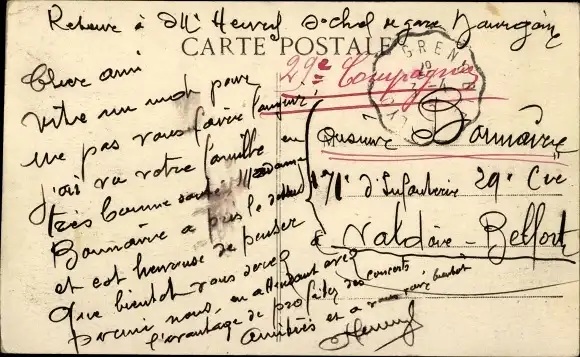 Retour à Mr Hervey s chef de gare Bourgoin
CARTE POSTALE
29e Compagnie
GRENO
Cher ami
Vite un mot pour
ne pas vous faire languir
j'ai vu votre famille en
très bonne santé Madame
Bonnaire a pris le dessus
et est heureuse de penser
que bientôt vous serez
parmi nous, en attendant avec
l'avantage de profiter des concerts
amitiés et à vous voir bientôt
Bonnaire
171e d'Infanterie 29e Cie
à Valdoie - Belfort